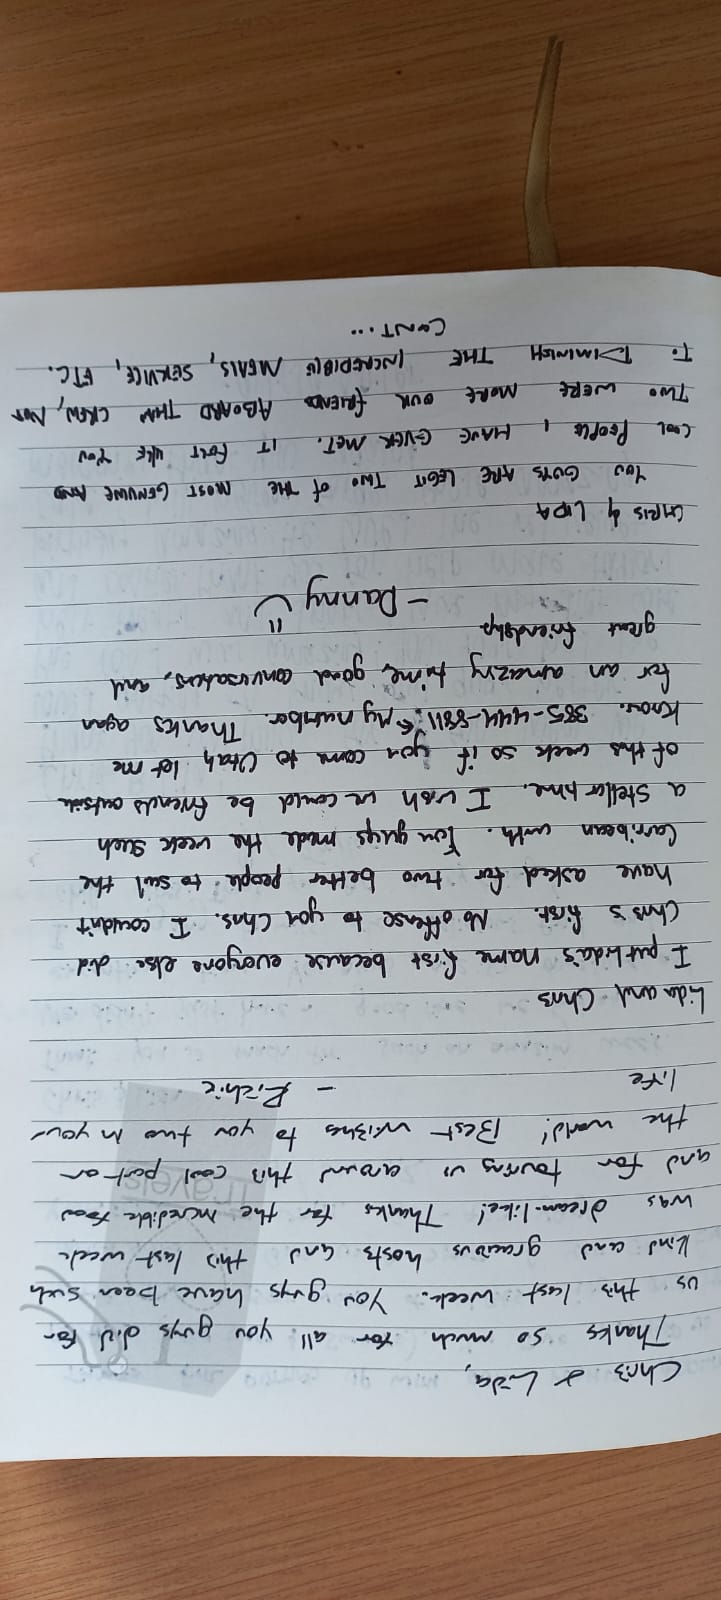 Chris & Lida,
Thanks so much for all you guys did for
us this last week. You guys have been such
kind and gracious hosts and this last week
was dream-like! Thanks for the incredible food
and for touring us around this cool part on
the world! Best wishes to you two in your
life - Richie
Lida and Chris
I put Lida's name first because everyone else did
Chris's first. No offense to you Chris. I couldn't
have asked for two better people to sail the
Carribean with. You guys made the week such
a stellar time. I wish we could be friends outside
of this week so if you come to Utah let me
know. 385-444-8811 ← My number. Thanks again
for an amazing time, good conversations, and
great friendship
- Danny
CHRIS & LIDA
YOU GUYS ARE LEGIT TWO OF THE MOST GENUINE AND
COOL PEOPLE I HAVE EVER MET. IT FELT LIKE YOU
TWO WERE MORE OUR FRIENDS ABOARD THAN CREW, NOT
TO DIMINISH THE INCREDIBLE MEALS, SERVICE, ETC.
CONT...